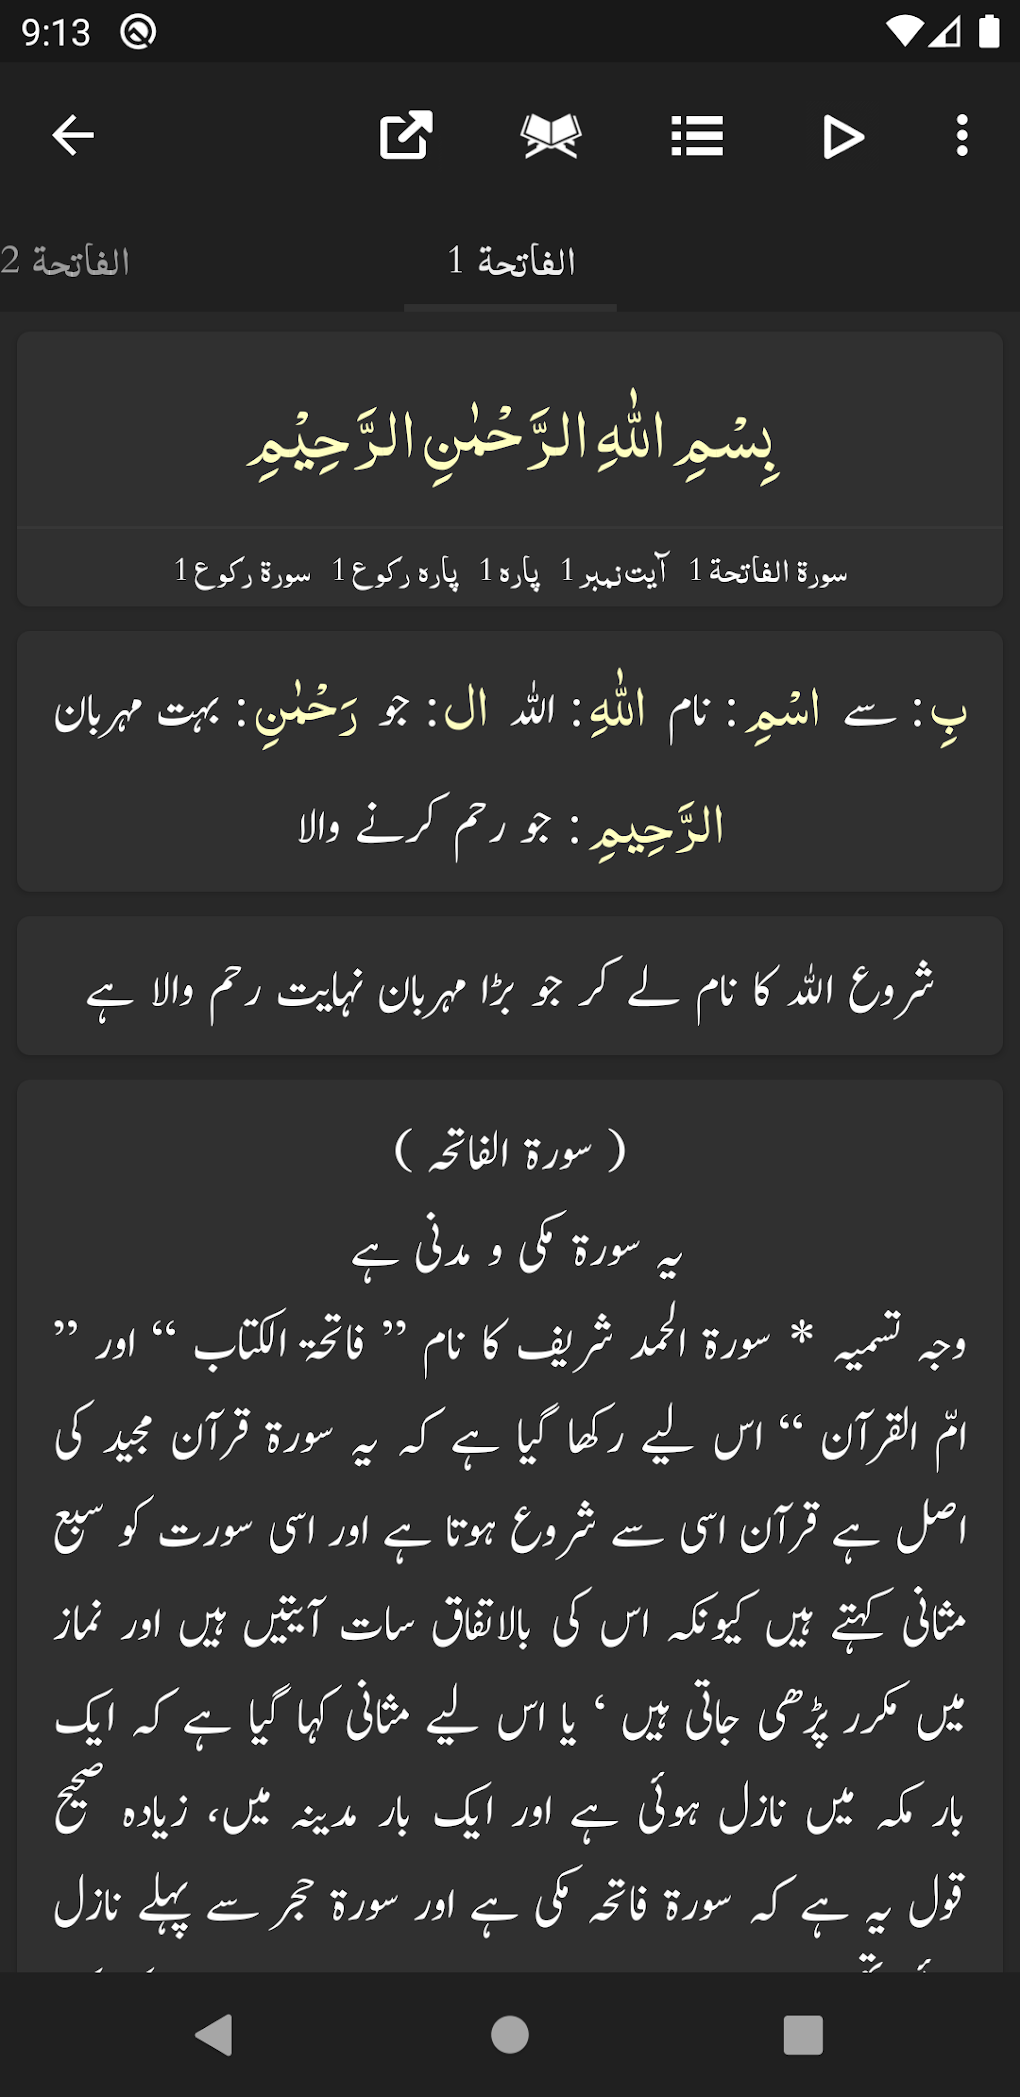 9:13
الفاتحة 1
الفاتحة 2
بِسْمِ اللّٰهِ الرَّحْمٰنِ الرَّحِيْمِ
سورۃ الفاتحة 1 آیت نمبر 1 پارہ 1 پارہ رکوع 1 سورۃ رکوع 1
بِ : سے اسْمِ : نام اللّٰهِ : اللہ ال : جو رَحْمٰنِ : بہت مہربان
الرَّحِيمِ : جو رحم کرنے والا
شروع اللہ کا نام لے کر جو بڑا مہربان نہایت رحم والا ہے
( سورۃ الفاتحہ )
یہ سورۃ مکی و مدنی ہے
وجہ تسمیہ * سورۃ الحمد شریف کا نام ” فاتحۃ الکتاب “ اور ”
امّ القرآن “ اس لیے رکھا گیا ہے کہ یہ سورۃ قرآن مجید کی
اصل ہے قرآن اسی سے شروع ہوتا ہے اور اسی سورت کو سبع
مثانی کہتے ہیں کیونکہ اس کی بالاتفاق سات آیتیں ہیں اور نماز
میں مکرر پڑھی جاتی ہیں ‘ یا اس لیے مثانی کہا گیا ہے کہ ایک
بار مکہ میں نازل ہوئی ہے اور ایک بار مدینہ میں، زیادہ صحیح
قول یہ ہے کہ سورۃ فاتحہ مکی ہے اور سورۃ حجر سے پہلے نازل